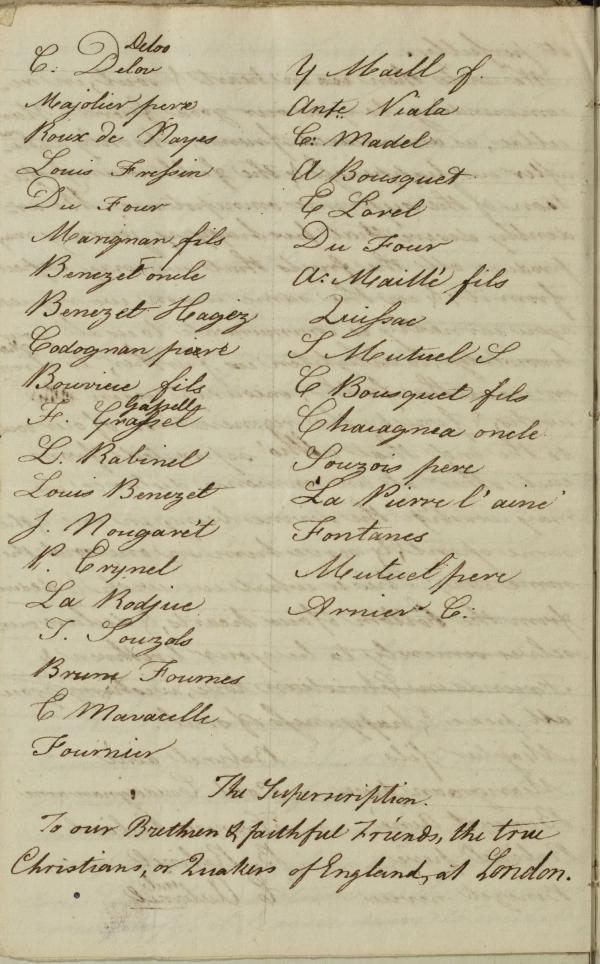 Deloo
C: Delov
Majolier pere
Roux de Nages
Louis Fressin
Du Four
Marignan fils
Benezet oncle
Benezet Hagez
Codognan pierre
Bouvieie fils
Gazelle
F. Grassel
L. Rabinel
Louis Benezet
J. Nougarèt
P. Erynel
La Rodjue
T. Souzols
Brun Fournes
E Maracelle
Fournier
Y Maill f.
Ante Viala
C: Madel
A Bousquet
E Lorel
Du Four
A: Maillé fils
Quissac
S Mutuel S
C Bousquet fils
Chaiagnea oncle
Souzois pere
La Pierre l'ainé
Fontanes
Mutuel pere
Arnier C:
The Superscription.
To our Brethren & faithful Friends, the true
Christians, or Quakers of England, at London.